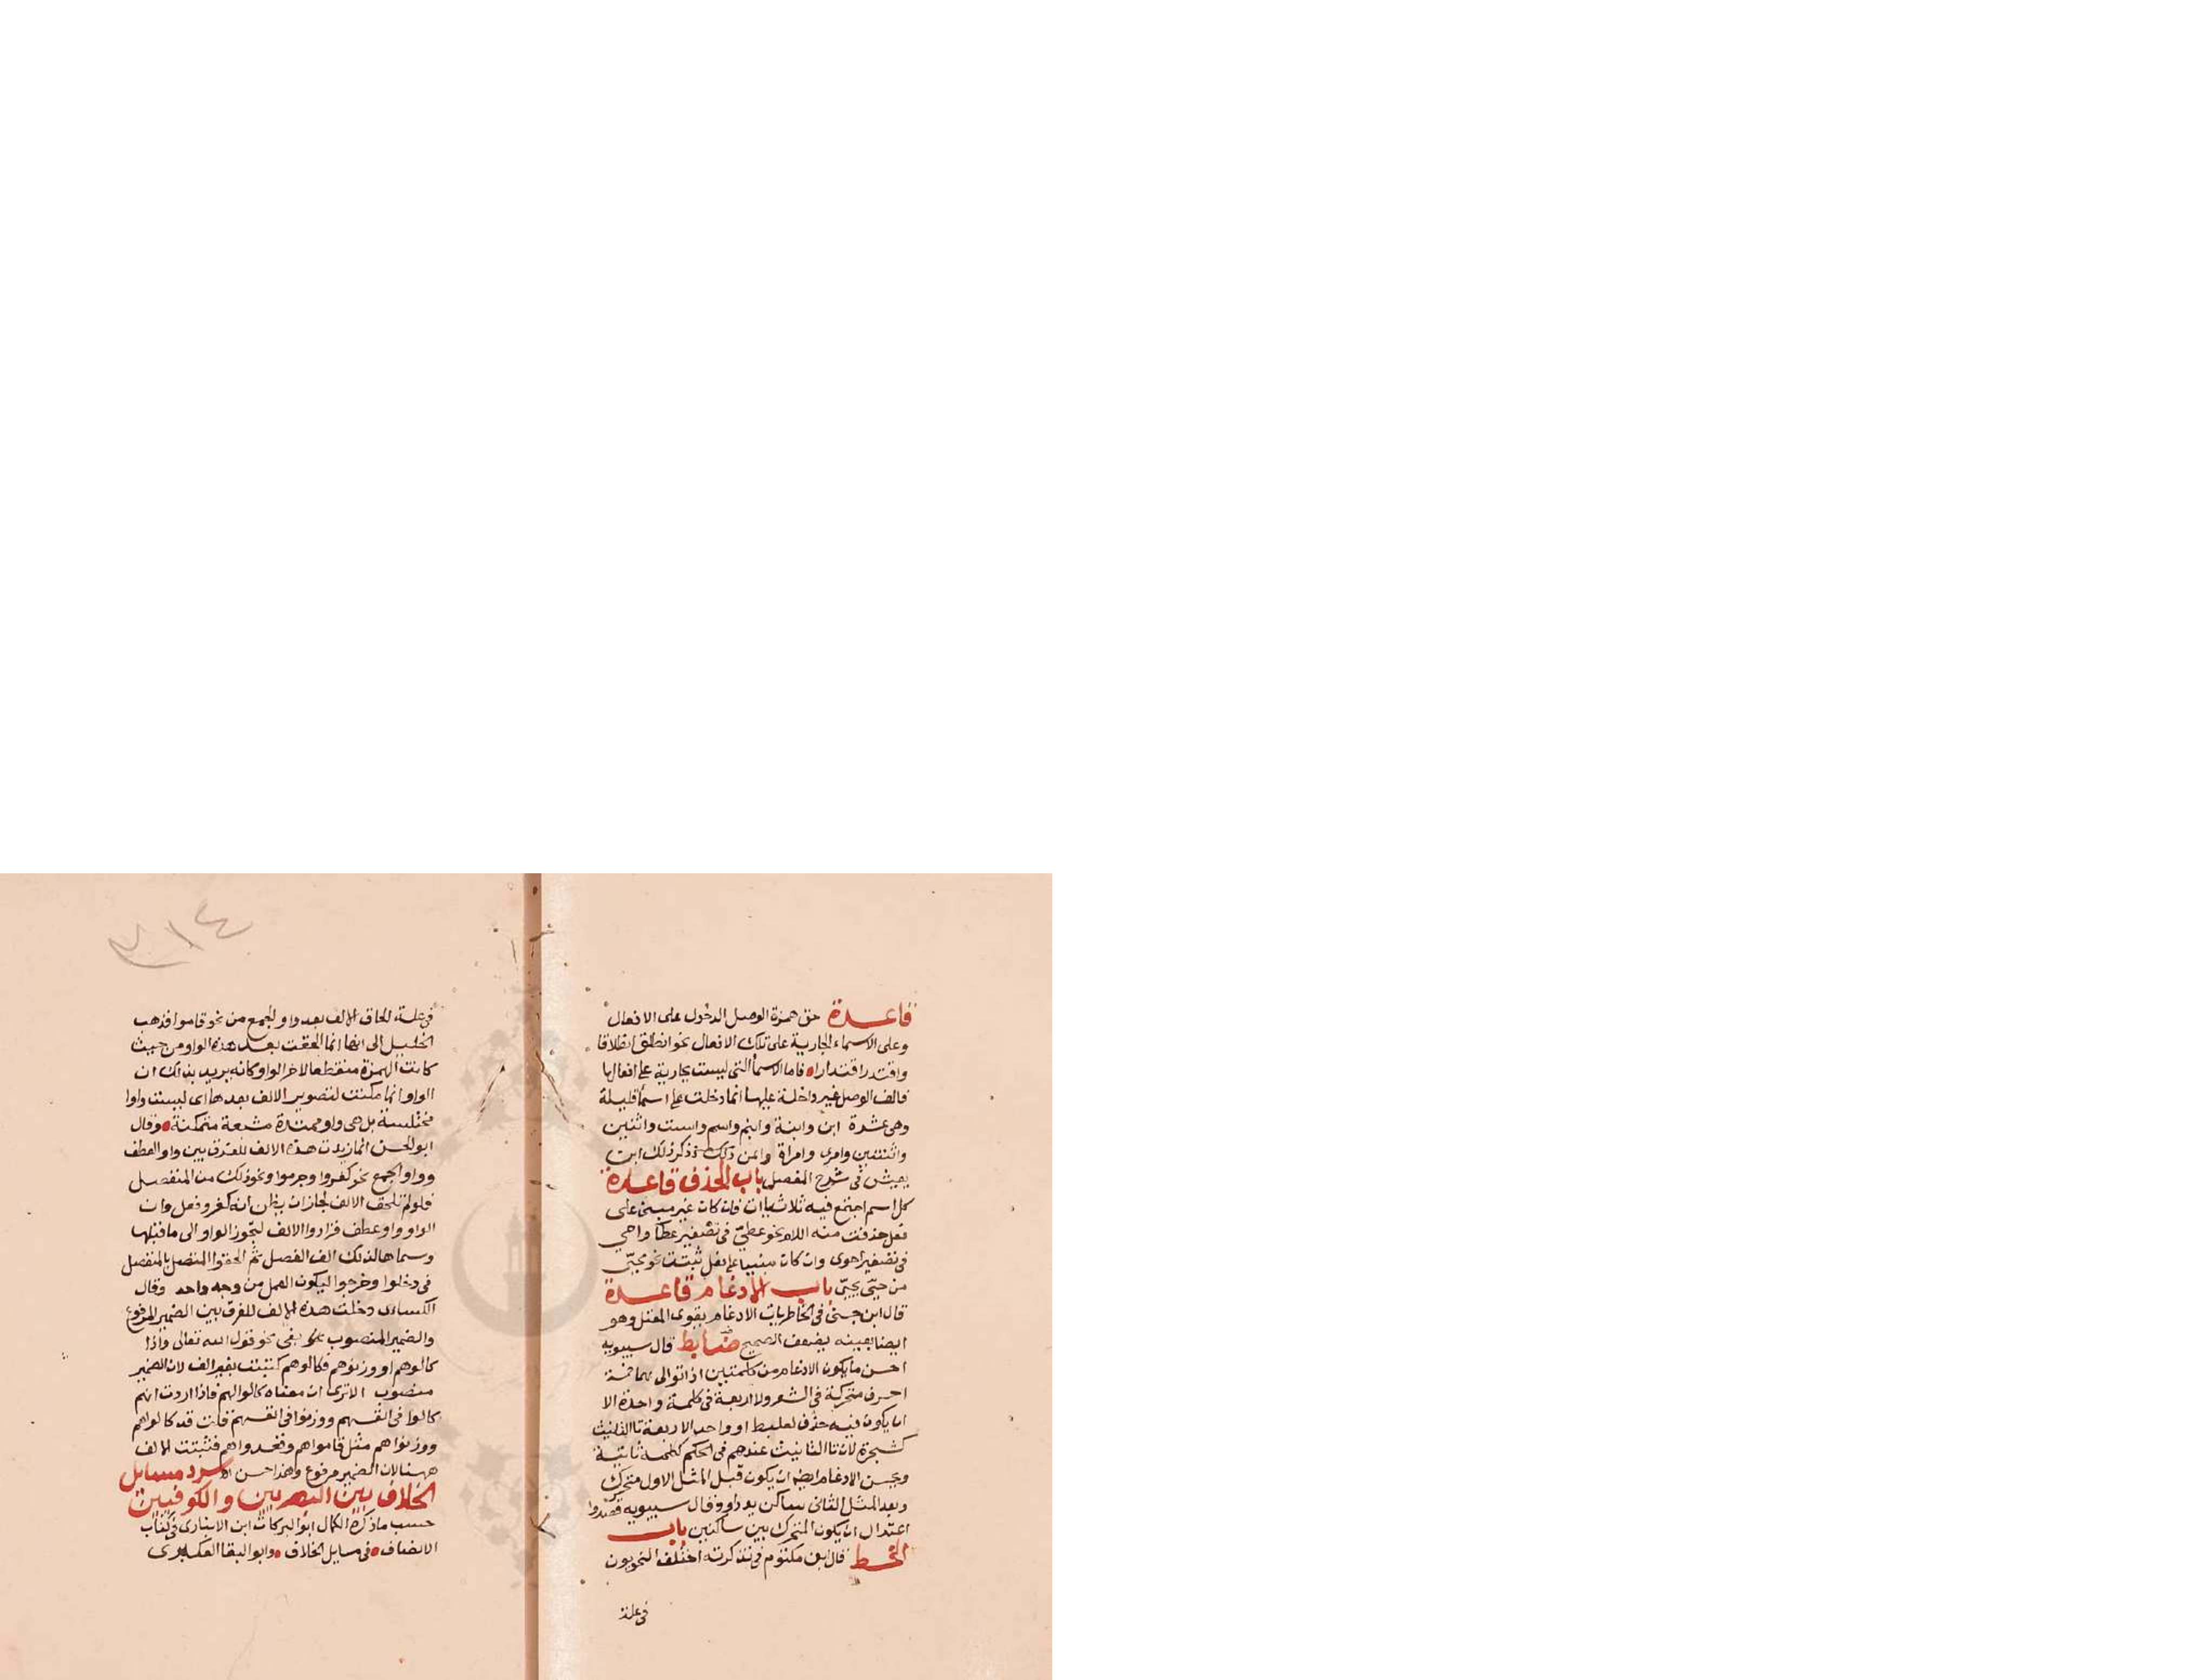 قاعدة حق همزة الوصل الدخول على الافعال
وعلى الاسماء الجارية على تلك الافعال نحو انطلق انطلاقا
واقتدر اقتدارا فاما الاسما التى ليست بجارية على افعالها
فالف الوصل غير داخلة عليها انما دخلت على اسما قليلة
وهى عشرة ابن وابنة وابنم واسم واست واثنين
واثنتين وامرى وامراة وايمن ذكر ذلك ابن
يعيش فى شرح المفصل باب الحذف قاعدة
كل اسم اجتمع فيه ثلاث ياات فان كان غير مبنى على
فعل حذفت منه اللام نحو عطىّ فى تصغير عطا واحي
فى تصغير احوى وان كان مبنيا على فعل ثبتت نحو محيّى
من حيّى يحيّى باب الادغام قاعدة
قال ابن جنى فى الخاطريات الادغام يقوى المعتل وهو
ايضا بعينه يضعف الصحيح ضابط قال سيبويه
احسن مايكون الادغام من كلمتين اذا توالى بهما خمسة
احرف متحركة فى الشعر ولا اربعة فى كلمة واحدة الا
ان يكون فيه حذف لعلبط او واحد الاربعة تا التانيث
كشجرة لان تا التانيث عندهم فى الحكم كلمة ثانية
ويحسن الادغام ايضا ان يكون قبل المثل الاول متحرك
وبعد المثل الثانى ساكن يد داوود قال سيبويه قصدوا
اعتدال ان يكون المتحرك بين ساكنين باب
الخط قال ابن مكتوم فى تذكرته اختلف النحويون
فى علة
٣١٤
فى علة الحاق الالف بعد واو الجمع من نحو قاموا فذهب
الخليل الى انها انما الحقت بعد هذه الواو من حيث
كانت الهمزة منقطعا لاخر الواو وكانه يريد بذلك ان
الواو انما مكنت لتصوير الالف بعدها اى ليست واوا
مختلسة بل هى واو ممتدة مشبعة متمكنة وقال
ابو الحسن انما زيدت هذه الالف للفرق بين واو العطف
وواو الجمع نحو كفروا وجرموا ونحو ذلك من المنفصل
فلو لم تلحق الالف لجاز ان يظن انه كفر وفعل وان
الواو واو عطف فزادوا الالف لتجوز الواو الى ماقبلها
وسماها لذلك الف الفصل ثم الحقوا المتصل بالمنفصل
فى دخلوا وخرجوا ليكون العمل من وجه واحد وقال
الكسائى دخلت هذه الالف للفرق بين الضمير المرفوع
والضمير المنصوب فى نحو قول الله تعالى واذا
كالوهم او وزنوهم فكالوهم كتبت بغير الف لان الضمير
منصوب الاترى ان معناه كالوا لهم فاذا اردت انهم
كالوا فى انفسهم ووزنوا فى انفسهم قلت قد كالوا هم
ووزنوا هم مثل قاموا هم وقعدوا هم فثبتت الالف
ههنا لان الضمير مرفوع وهذا حسن سرد مسايل
الخلاف بين البصريين والكوفيين
حسب ماذكره الكمال ابو البركات ابن الانبارى فى كتاب
الانصاف فى مسايل الخلاف وابو البقا العكبرى